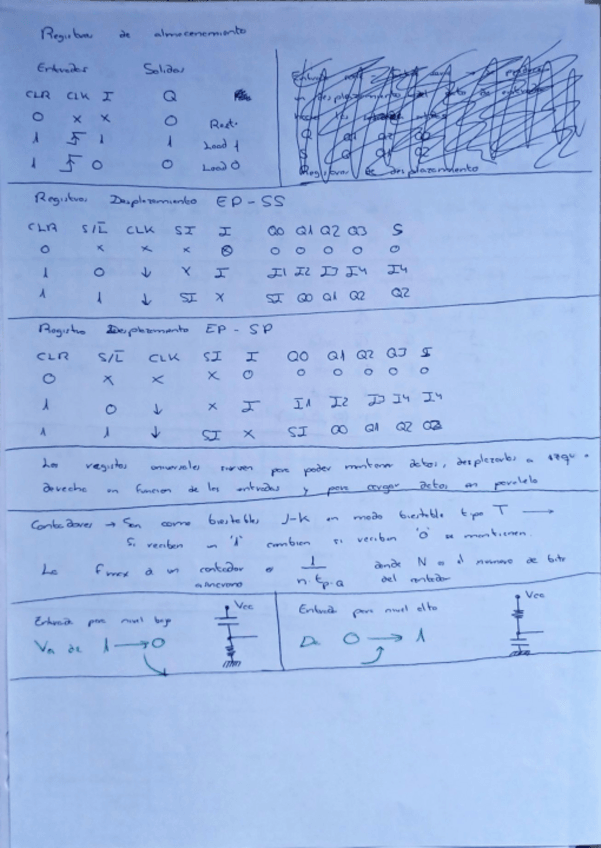 Registros de almacenamiento
Entradas Salidas
CLR CLK I Q
0 x x 0 Reset
1 1 1 Load 1
1 0 0 Load 0
Registros de desplazamiento
Registros Desplazamiento EP-SS
CLR S/L̅ CLK SI I Q0 Q1 Q2 Q3 S
0 x x x 0 0 0 0 0
1 0 ↓ x I I1 I2 I3 I4 I4
1 1 ↓ SI x SI Q0 Q1 Q2 Q2
Registro Desplazamiento EP - SP
CLR S/L̅ CLK SI I Q0 Q1 Q2 Q3 S
0 x x x 0 0 0 0 0 0
1 0 ↓ x I I1 I2 I3 I4 I4
1 1 ↓ SI x SI Q0 Q1 Q2 Q2
Los registros universales sirven para poder mantener datos, desplazarlos a izqu
derecha en funcion de las entradas y para cargar datos en paralelo
Contadores → Son como biestables J-K en modo biestable tipo T →
Si reciben un '1' cambian si reciben '0' se mantienen.
La fmax d un contador es 1/n·tp-q donde N es el numero de bits
asincrono del contador
Entrada para nivel bajo Vcc
Va de 1 → 0
Entrada para nivel alto Vcc
D 0 → 1